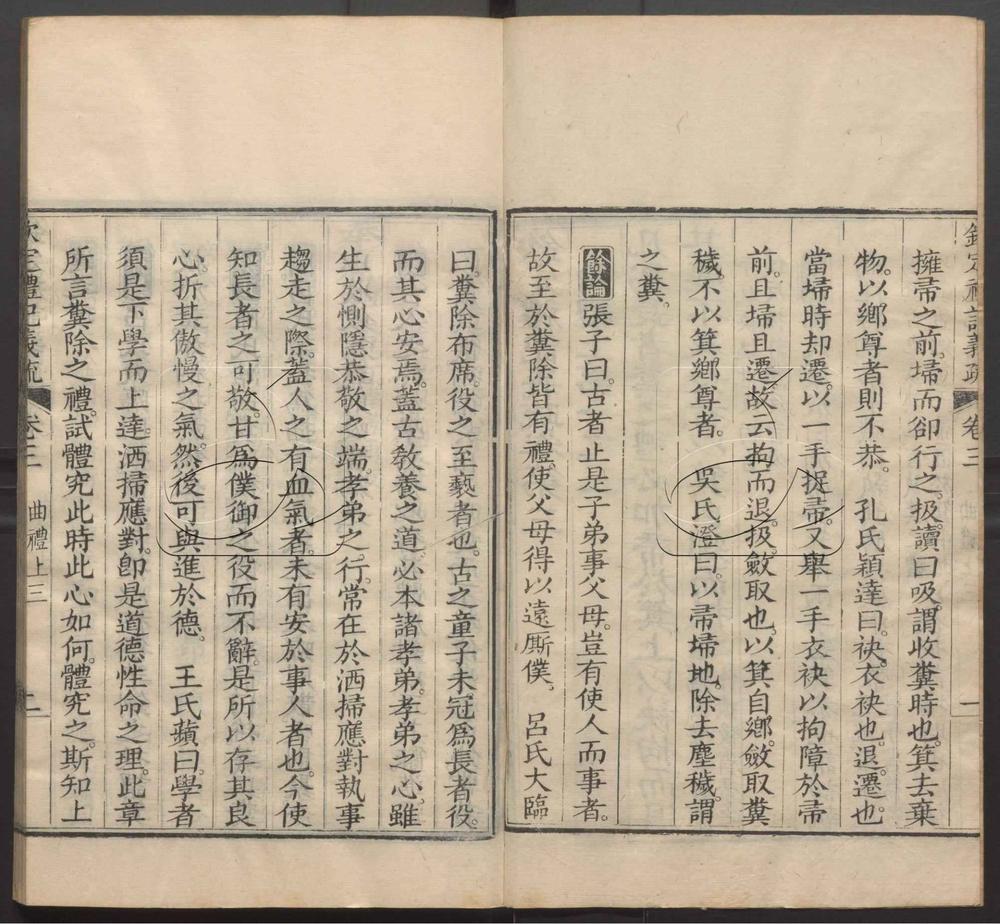 欽定禮記義疏　卷三　一
擁帚之前。埽而卻行之。扱。讀曰吸。謂收糞時也。箕去棄
物。以鄉尊者則不恭。　孔氏穎達曰。袂。衣袂也。退。遷也。
當埽時却遷。以一手捉帚。又舉一手衣袂以拘障於帚
前。且埽且遷。故云拘而退。扱。斂取也。以箕自鄉。斂取糞
穢。不以箕鄉尊者。　吳氏澄曰。以帚埽地。除去塵穢。謂
之糞。
餘論張子曰。古者止是子弟事父母。豈有使人而事者。
故至於糞除皆有禮。使父母得以遠厮僕。　呂氏大臨
曰。糞除布席。役之至褻者也。古之童子未冠爲長者役。
而其心安焉。蓋古敎養之道。必本諸孝弟。孝弟之心。雖
生於惻隱恭敬之端。孝弟之行。常在於洒掃應對執事
趨走之際。蓋人之有血氣者。未有安於事人者也。今使
知長者之可敬。甘爲僕御之役而不辭。是所以存其良
心。折其傲慢之氣。然後可與進於德。　王氏蘋曰。學者
須是下學而上達。洒掃應對。卽是道德性命之理。此章
所言糞除之禮。試體究此時此心如何。體究之。斯知上
欽定禮記義疏　卷三　曲禮上三